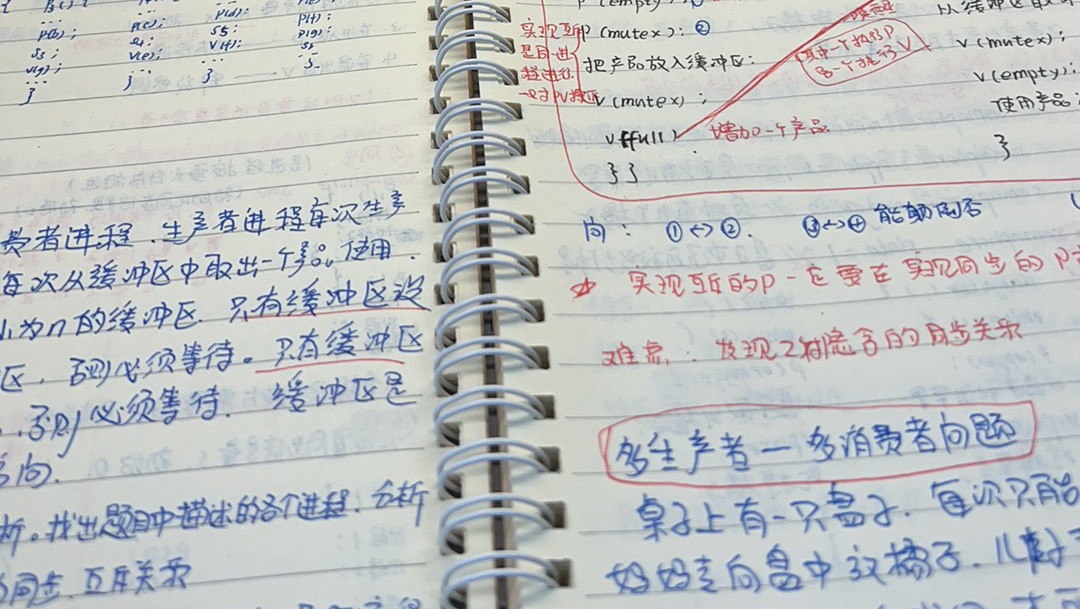 P(b);
S5;
V(g);
...
}
P(c);
S4;
V(e);
...
}
P(d);
S5;
V(f);
...
}
P(f);
P(g);
S6
...
}
费者进程、生产者进程每次生产
每次从缓冲区中取出一个产品使用.
为n的缓冲区. 只有缓冲区没
区, 否则必须等待。只有缓冲区
, 否则必须等待. 缓冲区是
问.
析。找出题目中描述的各个进程, 分析
同步、互斥关系
P(empty);
P(mutex); ②
把产品放入缓冲区;
V(mutex);
V(full) 增加一个产品
}}
实现互斥
是同一进
程进行
一对PV操作
其中一个执行P
另一个执行V
V(mutex);
V(empty);
使用产品;
}
问: ①<->②. ③<->④ 能颠倒否
实现互斥的P一定要在实现同步的P
难点: 发现2对隐含的同步关系
多生产者—多消费者问题
桌子上有一只盘子. 每次只能
妈妈专向盘中放橘子. 儿子